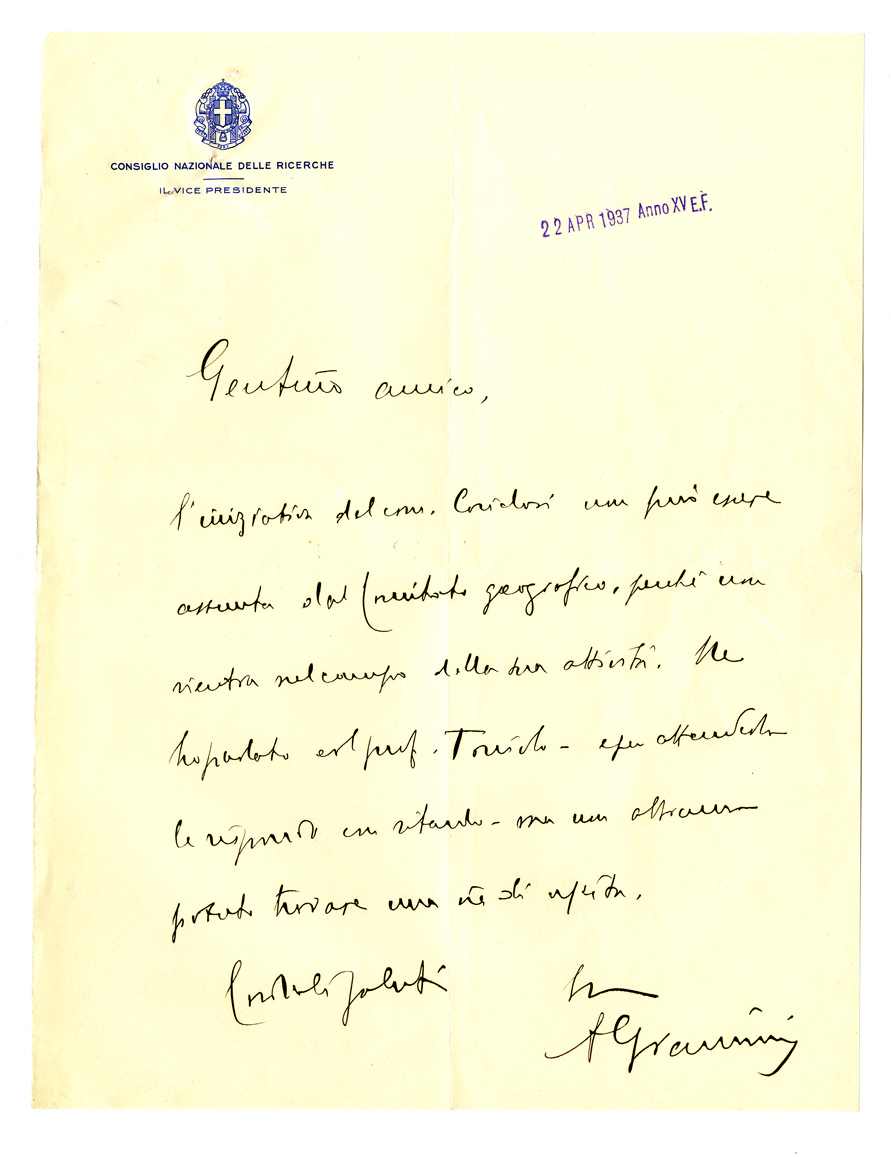 CONSIGLIO NAZIONALE DELLE RICERCHE
IL VICE PRESIDENTE
22 APR 1937 Anno XV E.F.
amico,
l'iniziativa del com. non può essere
assunta dal Comitato geografico, perchè non
rientra nel campo della sua attività. Ne
ho parlato col prof. Toniolo - e per attenderlo
le rispondo con ritardo - ma non abbiamo
potuto trovare una via di uscita.
Cordiali saluti